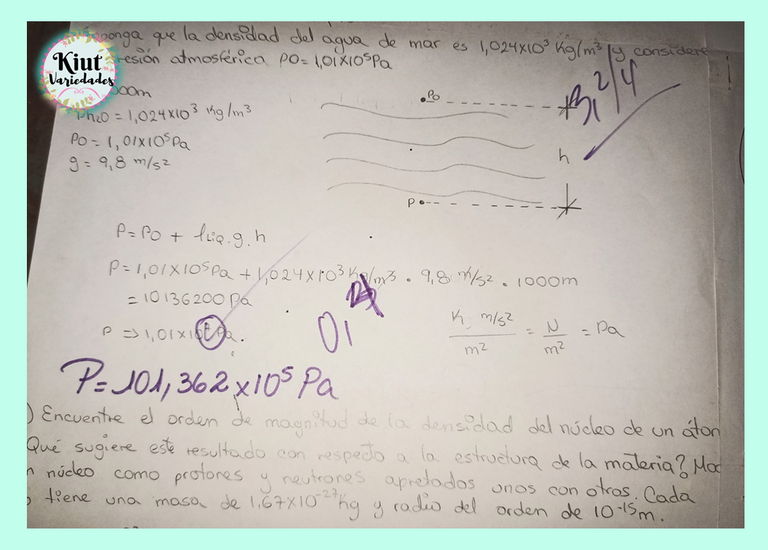 Kiut
Variedades
que la densidad del agua de mar es 1,024x10³ Kg/m³ y considere
atmosférica PO = 1,01x10⁵Pa
= 1,024x10³ Kg/m³
PO = 1,01x10⁵Pa
g = 9,8 m/s²
Po
h
P
P = PO + liq.g.h
P = 1,01x10⁵Pa + 1,024x10³ Kg/m³ . 9,8 m/s² . 1000m
= 10136200 Pa
m/s²
m²
= N
m²
= Pa
P = 101,362x10⁵ Pa
) Encuentre el orden de magnitud de la densidad del núcleo de un áton
Qué sugiere este resultado con respecto a la estructura de la materia? Mod
núcleo como protones y neutrones apretados unos con otros. Cada
tiene una masa de 1,67x10⁻²⁷kg y radio del orden de 10⁻¹⁵m.